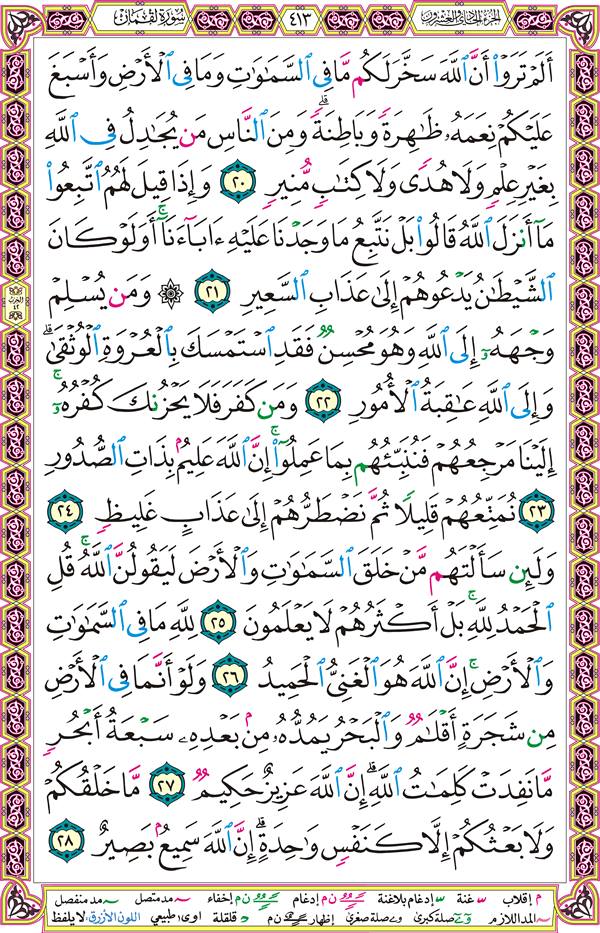 الجزء الحادي والعشرون
٤١٣
سورة لقمان
أَلَمْ تَرَوْا۟ أَنَّ ٱللَّهَ سَخَّرَ لَكُم مَّا فِى ٱلسَّمَٰوَٰتِ وَمَا فِى ٱلْأَرْضِ وَأَسْبَغَ
عَلَيْكُمْ نِعَمَهُۥ ظَٰهِرَةً وَبَاطِنَةً ۗ وَمِنَ ٱلنَّاسِ مَن يُجَٰدِلُ فِى ٱللَّهِ
بِغَيْرِ عِلْمٍ وَلَا هُدًى وَلَا كِتَٰبٍ مُّنِيرٍ ٢٠ وَإِذَا قِيلَ لَهُمُ ٱتَّبِعُوا۟
مَآ أَنزَلَ ٱللَّهُ قَالُوا۟ بَلْ نَتَّبِعُ مَا وَجَدْنَا عَلَيْهِ ءَابَآءَنَآ ۚ أَوَلَوْ كَانَ
ٱلشَّيْطَٰنُ يَدْعُوهُمْ إِلَىٰ عَذَابِ ٱلسَّعِيرِ ٢١ ۞ وَمَن يُسْلِمْ
وَجْهَهُۥٓ إِلَى ٱللَّهِ وَهُوَ مُحْسِنٌ فَقَدِ ٱسْتَمْسَكَ بِٱلْعُرْوَةِ ٱلْوُثْقَىٰ ۗ
وَإِلَى ٱللَّهِ عَٰقِبَةُ ٱلْأُمُورِ ٢٢ وَمَن كَفَرَ فَلَا يَحْزُنكَ كُفْرُهُۥٓ ۚ
إِلَيْنَا مَرْجِعُهُمْ فَنُنَبِّئُهُم بِمَا عَمِلُوٓا۟ ۚ إِنَّ ٱللَّهَ عَلِيمٌۢ بِذَاتِ ٱلصُّدُورِ
٢٣ نُمَتِّعُهُمْ قَلِيلًا ثُمَّ نَضْطَرُّهُمْ إِلَىٰ عَذَابٍ غَلِيظٍ ٢٤
وَلَئِن سَأَلْتَهُم مَّنْ خَلَقَ ٱلسَّمَٰوَٰتِ وَٱلْأَرْضَ لَيَقُولُنَّ ٱللَّهُ ۚ قُلِ
ٱلْحَمْدُ لِلَّهِ ۚ بَلْ أَكْثَرُهُمْ لَا يَعْلَمُونَ ٢٥ لِلَّهِ مَا فِى ٱلسَّمَٰوَٰتِ
وَٱلْأَرْضِ ۚ إِنَّ ٱللَّهَ هُوَ ٱلْغَنِىُّ ٱلْحَمِيدُ ٢٦ وَلَوْ أَنَّمَا فِى ٱلْأَرْضِ
مِن شَجَرَةٍ أَقْلَٰمٌ وَٱلْبَحْرُ يَمُدُّهُۥ مِنۢ بَعْدِهِۦ سَبْعَةُ أَبْحُرٍ
مَّا نَفِدَتْ كَلِمَٰتُ ٱللَّهِ ۗ إِنَّ ٱللَّهَ عَزِيزٌ حَكِيمٌ ٢٧ مَّا خَلْقُكُمْ
وَلَا بَعْثُكُمْ إِلَّا كَنَفْسٍ وَٰحِدَةٍ ۗ إِنَّ ٱللَّهَ سَمِيعٌۢ بَصِيرٌ ٢٨
الحزب ٤٢
م إقلاب غنة إدغام بلا غنة ن م إدغام ن م إخفاء مد متصل مد منفصل
المد اللازم صلة كبرى صلة صغرى إظهار ن م قلقلة اوى طبيعي اللون الأزرق: لا يلفظ